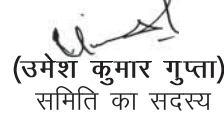 (उमेश कुमार गुप्ता)
समिति का सदस्य